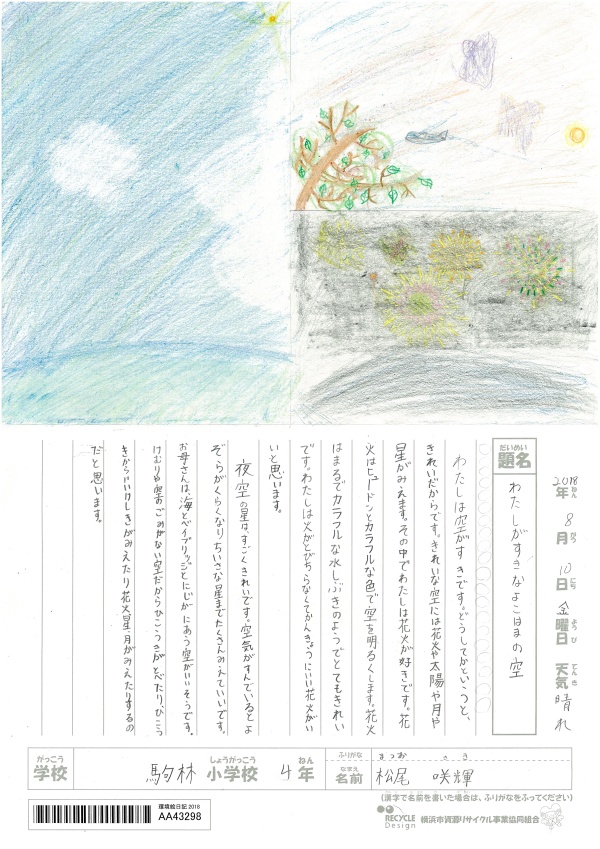 2018年ねん 8月がつ 10日にち 金曜日ようび 天気てんき 晴れ
だいめい
題名
わたしがすきなよこはまの空
わたしは空がすきです。どうしてかというと、
きれいだからです。きれいな空には花火や太陽や月や
星がみえます。その中でわたしは花火が好きです。花
火はヒュードンとカラフルな色で空を明るくします。花火
はまるでカラフルな水しぶきのようでとてもきれい
です。わたしは火がとびちらなくてかんきょうにいい花火がい
いと思います。
夜空の星は、すごくきれいです。空気がすんでいるとよ
ぞらがくらくなりちいさな星までたくさんみえていいです。
お母さんは、海とベイブリッジとにじがにあう空がいいそうです。
けむりや空のごみがない空だからひこうきがとべたり、ひこう
きからいいけしきがみえたり花火星月がみえたりするの
だと思います。
がっこう
学校
駒林 小学校しょうがっこう 4年ねん
ふりがな まつお さき
なまえ
名前 松尾 咲輝
(漢字で名前を書いた場合は、ふりがなをふってください)
環境絵日記 2018
AA43298
RECYCLE Design
横浜市資源リサイクル事業協同組合